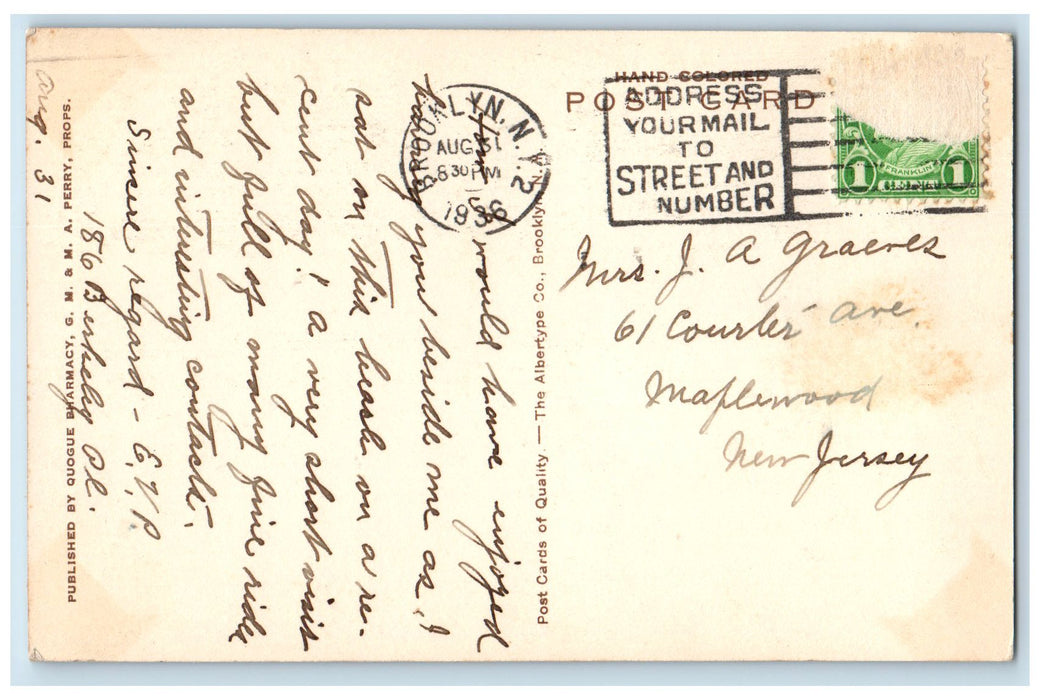 HAND COLORED
POST CARD
BROOKLYN, N.Y. 2
AUG 31
8 30 PM
1936
ADDRESS
YOUR MAIL
TO
STREET AND
NUMBER
FRANKLIN
1 1
Mrs. J. A Graeves
61 Courter Ave.
Maplewood
New Jersey
Aug. 31
would have enjoyed
having you beside me as I
sat on this beach on a re-
cent day! A very short visit
but full of many fine rides
and interesting contacts.
Sincere regard - E.V.P.
186 Berkeley Pl.
Post Cards of Quality. — The Albertype Co., Brooklyn, N.Y.
PUBLISHED BY QUOGUE PHARMACY, G. M. & M. A. PERRY, PROPS.